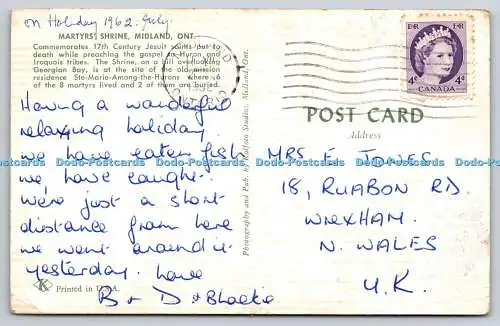 on Holiday 1962. July.
MARTYRS' SHRINE, MIDLAND, ONT.
Commemorates 17th Century Jesuit saints put to
death while preaching the gospel to Huron and
Iroquois tribes. The Shrine, on a hill overlooking
Georgian Bay, is at the site of the old mission
residence Ste-Marie-Among-the-Hurons where 6
of the 8 martyrs lived and 2 of them are buried.
Having a wonderful
relaxing holiday.
we have eaten fish
we, have caught.
Were just a short
distance from here
we went around it
yesterday. love
B + D + Blackie
K Printed in U.S.A.
Photography and Pub. by Budford Studios, Midland, Ont.
E II R
4¢ 4¢
CANADA
POST CARD
Address
MRS. E. JONES
18, RUABON RD.
WREXHAM.
N. WALES
U.K.
Dodo-Postcards Dodo-Postcards Dodo-Postcards Dodo-Postcards Dodo-Postcards